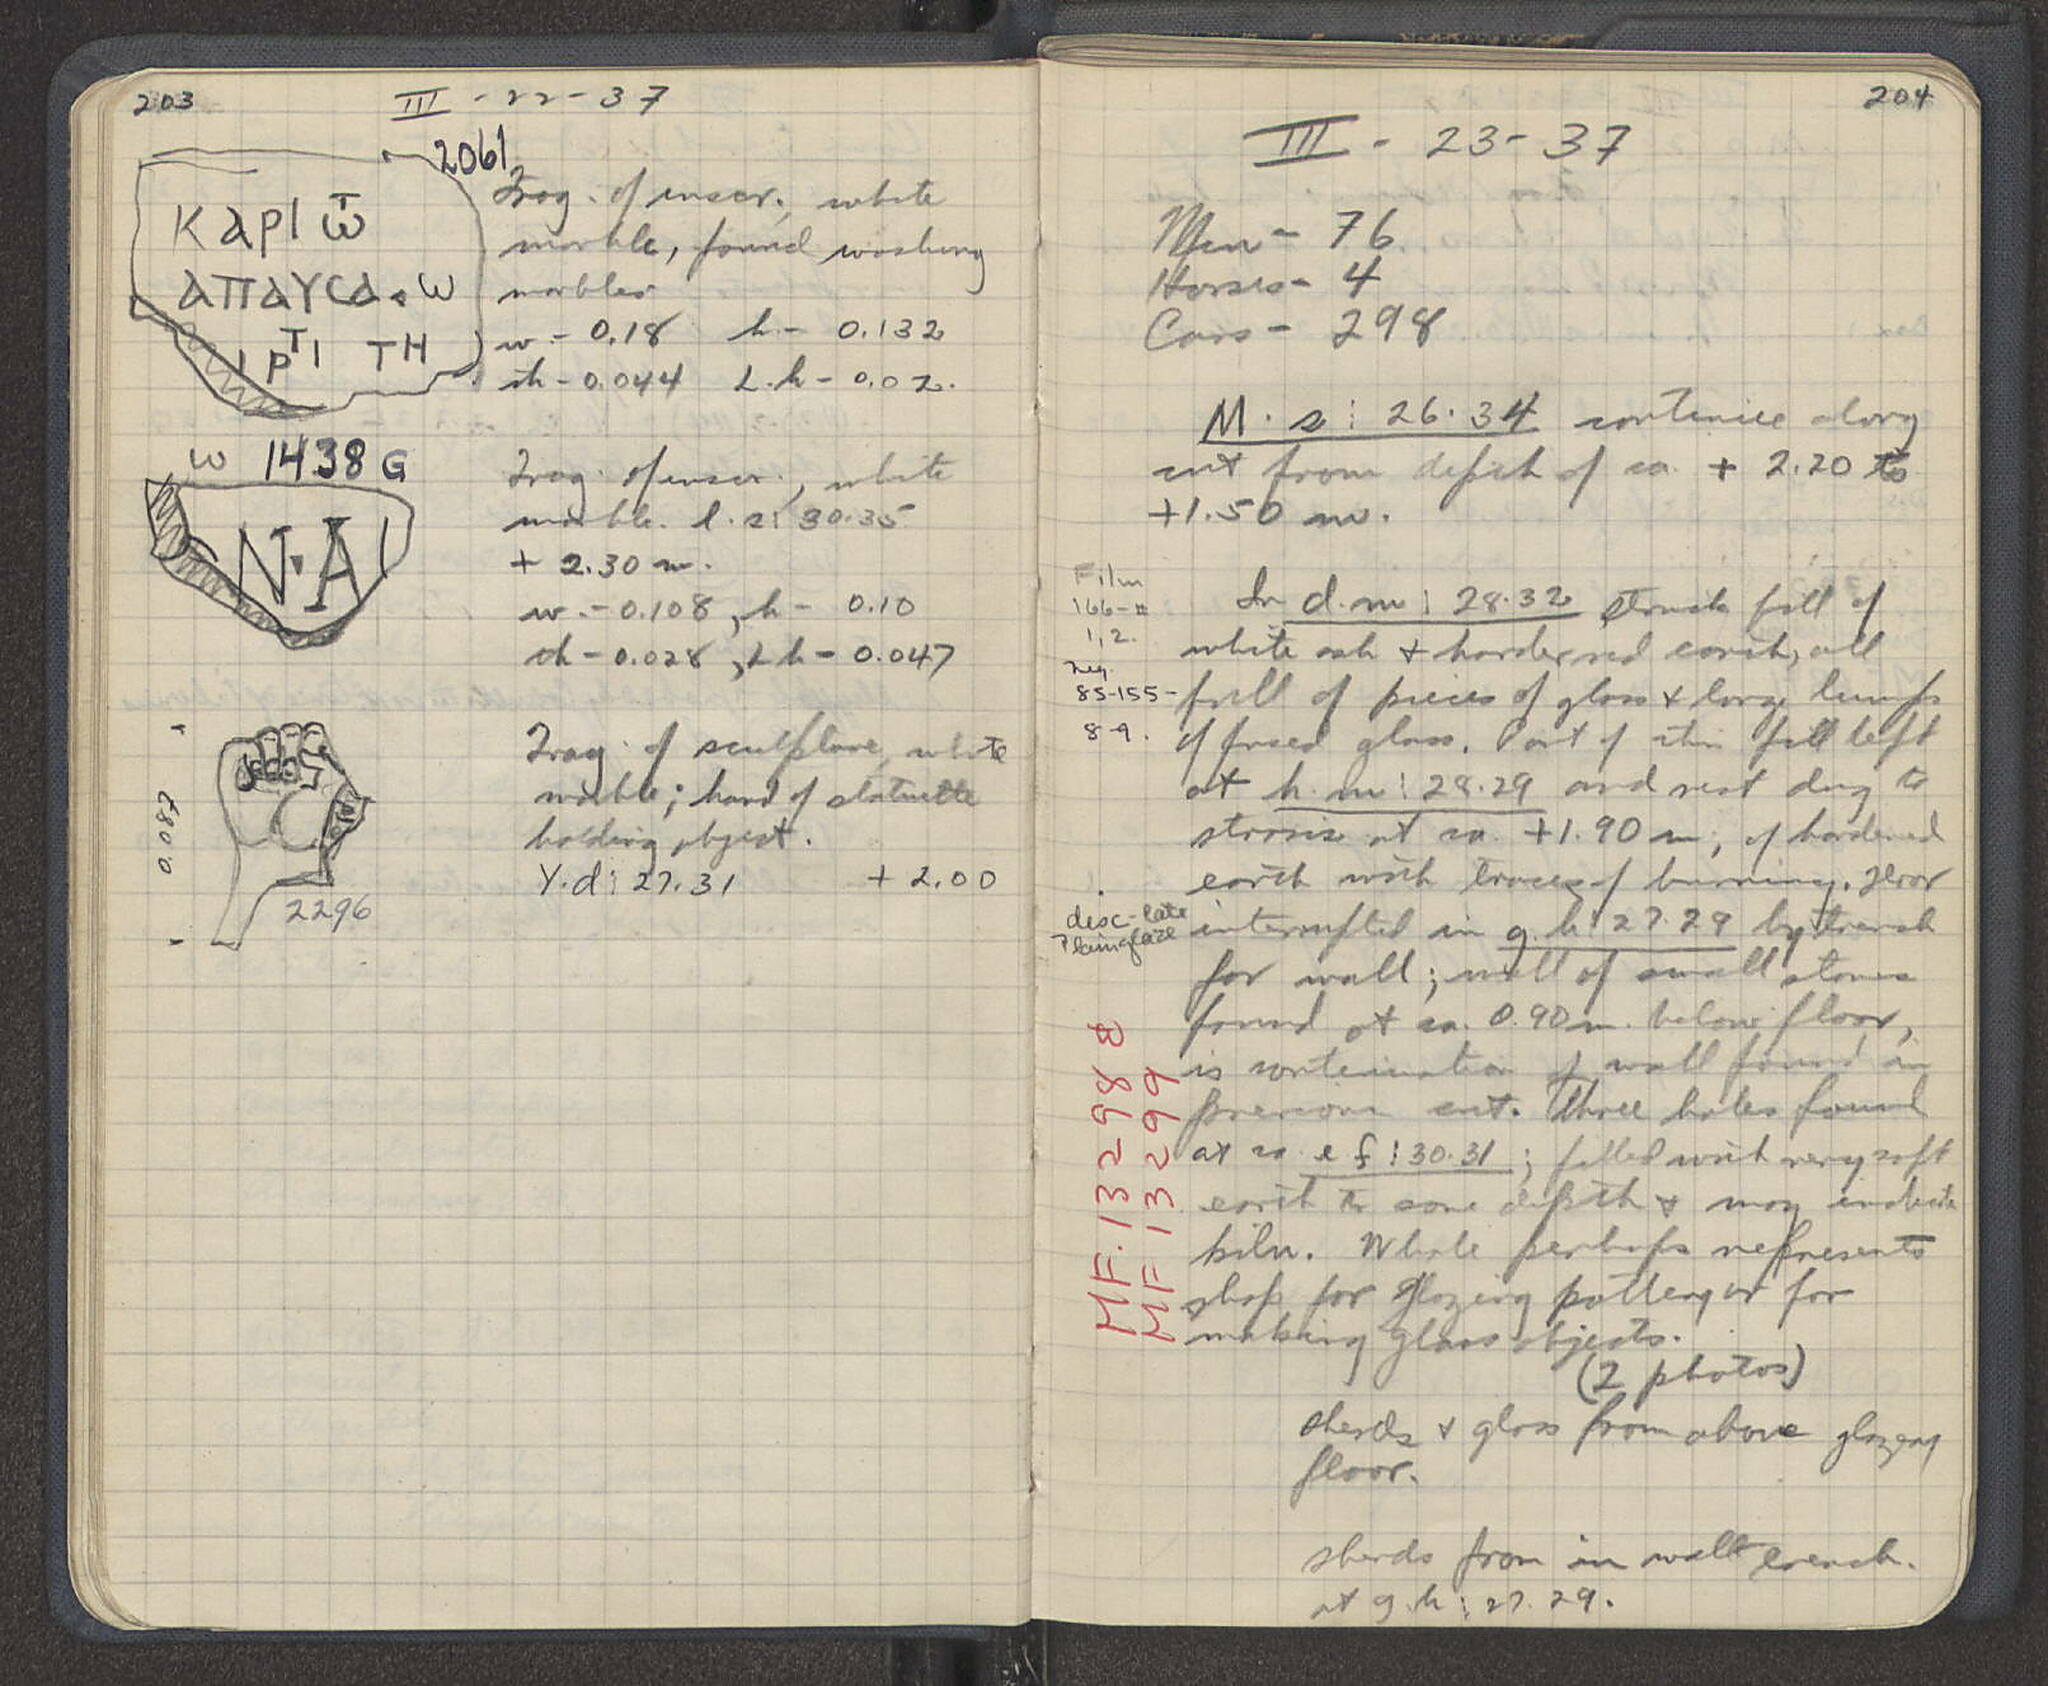 203
III - 22 - 37
2061
ΚαΡΙ ω̄
αΠαΥCα ω
ΙΡΤΙ ΤΗ
Frag. of inscr., white
marble, found washing
marbles
w - 0.18 h - 0.132
th - 0.044 L.h - 0.02.
ω 1438 G
N·A
Frag. of inscr., white
marble. l.s: 30.35
+ 2.30 m.
w. - 0.108, h - 0.10
th - 0.028, L h - 0.047
0.087
2296
Frag. of sculpture, white
marble; hand of statuette
holding object.
Y.d: 27.31 + 2.00
204
III - 23 - 37
Men - 76
Horses - 4
Cars - 298
M.s: 26.34 continue along
cut from depth of ca. + 2.20 to
+1.50 m.
Film
166-#
1,2.
neg.
85-155-
8-9.
In d.m: 28.32 struck fill of
white ash & harder red earth, all
full of pieces of glass & large lumps
of fused glass. Part of this fill left
at h.m: 28.29 and rest dug to
strosis at ca. +1.90 m, of hardened
earth with traces of burning. Floor
disc-late
interrupted in g.h: 27.29 by trench
for wall; wall of small stones
found at ca. 0.90 m. below floor,
is continuation of wall found in
previous cut. Three holes found
at ca. e f: 30.31; filled with very soft
earth to some depth & may indicate
kiln. Whole perhaps represents
shop for glazing pottery or for
making glass objects.
(2 photos)
MF. 13298
MF 13299
sherds & glass from above glazery
floor.
sherds from in wall trench.
at g.h: 27.29.